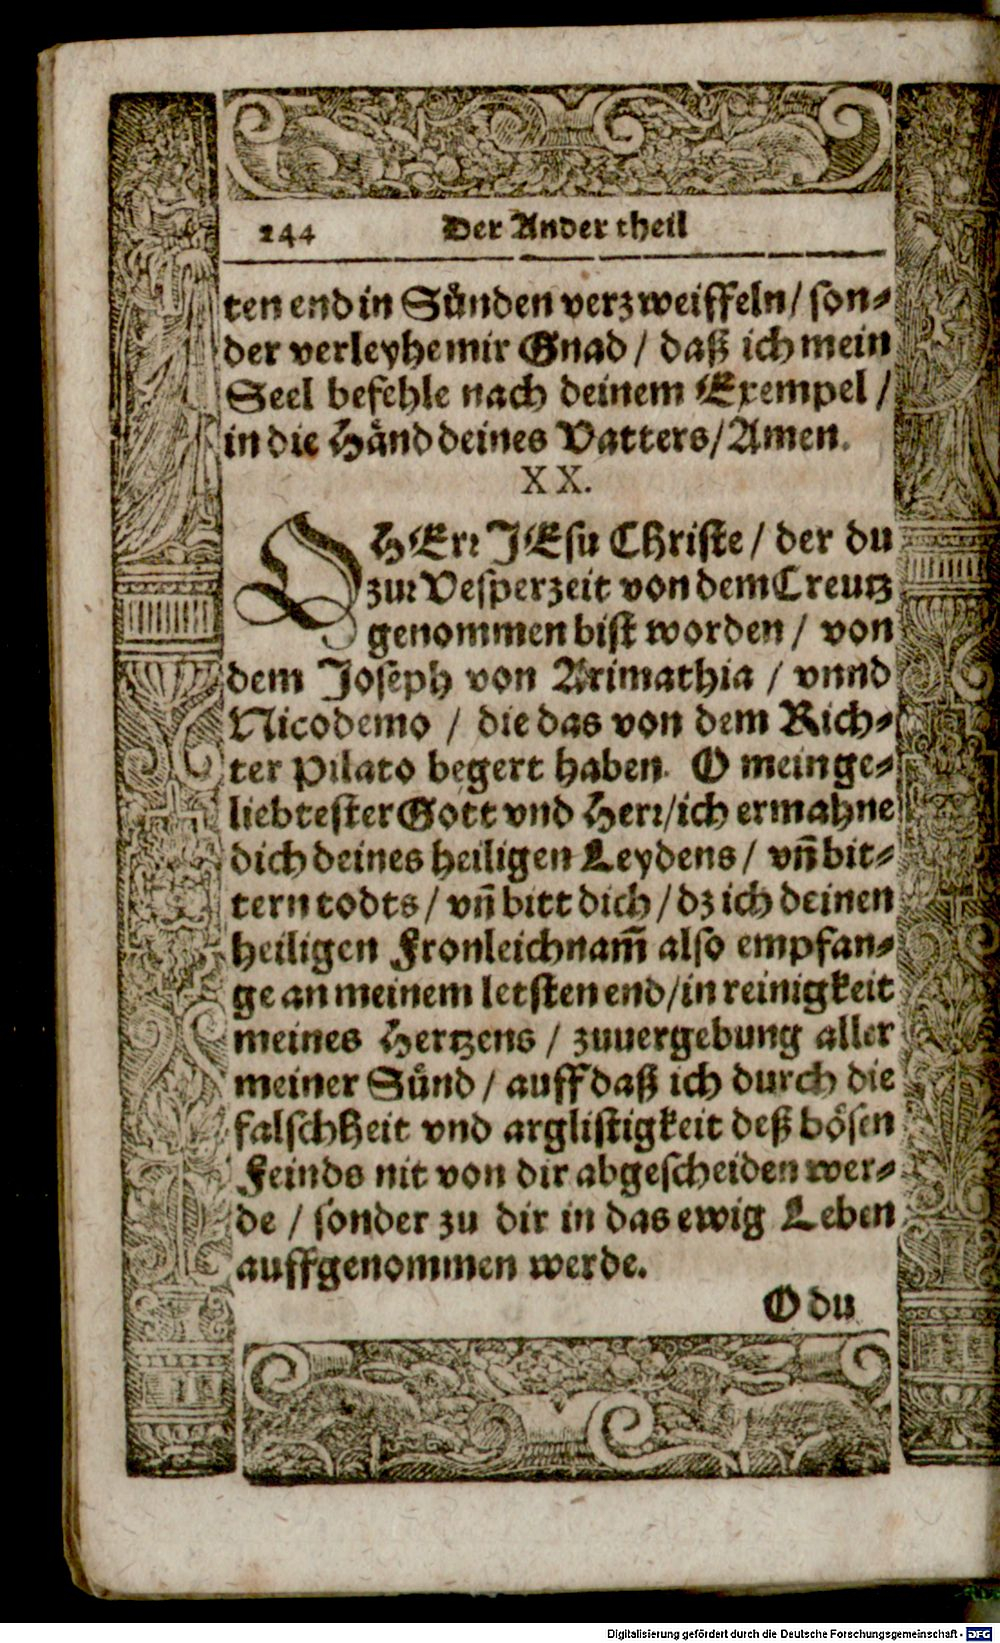 244 Der Ander theil
ten end in Sünden verzweiffeln / son⸗
der verleyhe mir Gnad / daß ich mein
Seel befehle nach deinem Exempel /
in die Händ deines Vatters / Amen.
XX.
O HErr JEsu Christe / der du
zur Vesperzeit von dem Creutz
genommen bist worden / von
dem Joseph von Arimathia / vnnd
Nicodemo / die das von dem Rich⸗
ter Pilato begert haben. O mein ge⸗
liebtester Gott vnd Herr / ich ermahne
dich deines heiligen Leydens / vn̄ bit⸗
tern todts / vn̄ bitt dich / dz ich deinen
heiligen Fronleichnam̄ also empfan⸗
ge an meinem letsten end / in reinigkeit
meines Hertzens / zuuergebung aller
meiner Sünd / auff daß ich durch die
falschheit vnd arglistigkeit deß bösen
Feinds nit von dir abgescheiden wer⸗
de / sonder zu dir in das ewig Leben
auffgenommen werde.
O du
Digitalisierung gefördert durch die Deutsche Forschungsgemeinschaft - DFG